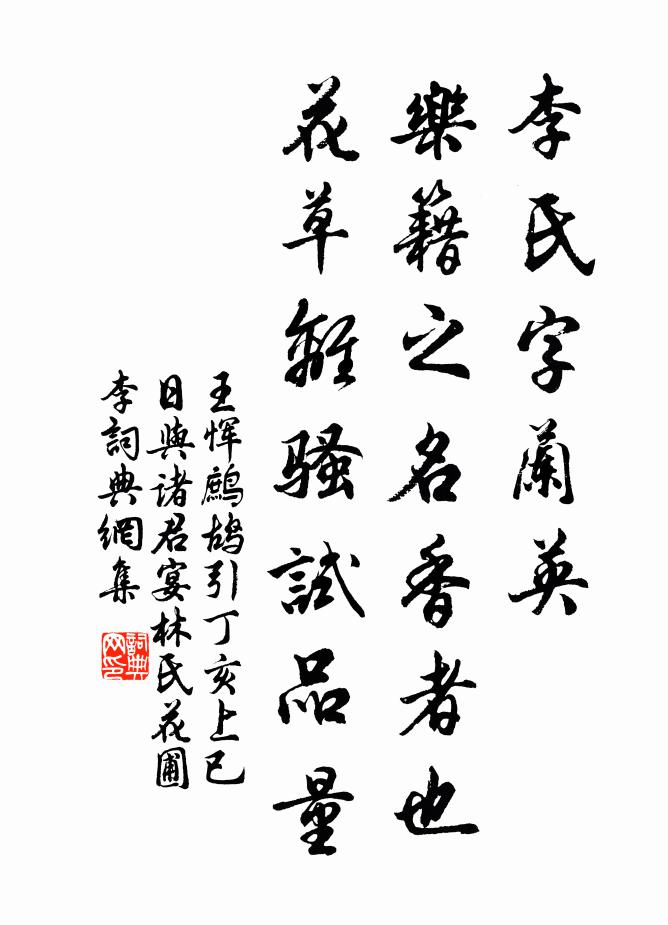 李氏字蘭英
樂籍之名香者也
花草離騷試品量
王恽鷓鴣引丁亥上巳
日與諸君宴林氏花圃
李詞典網集
詞典
网印